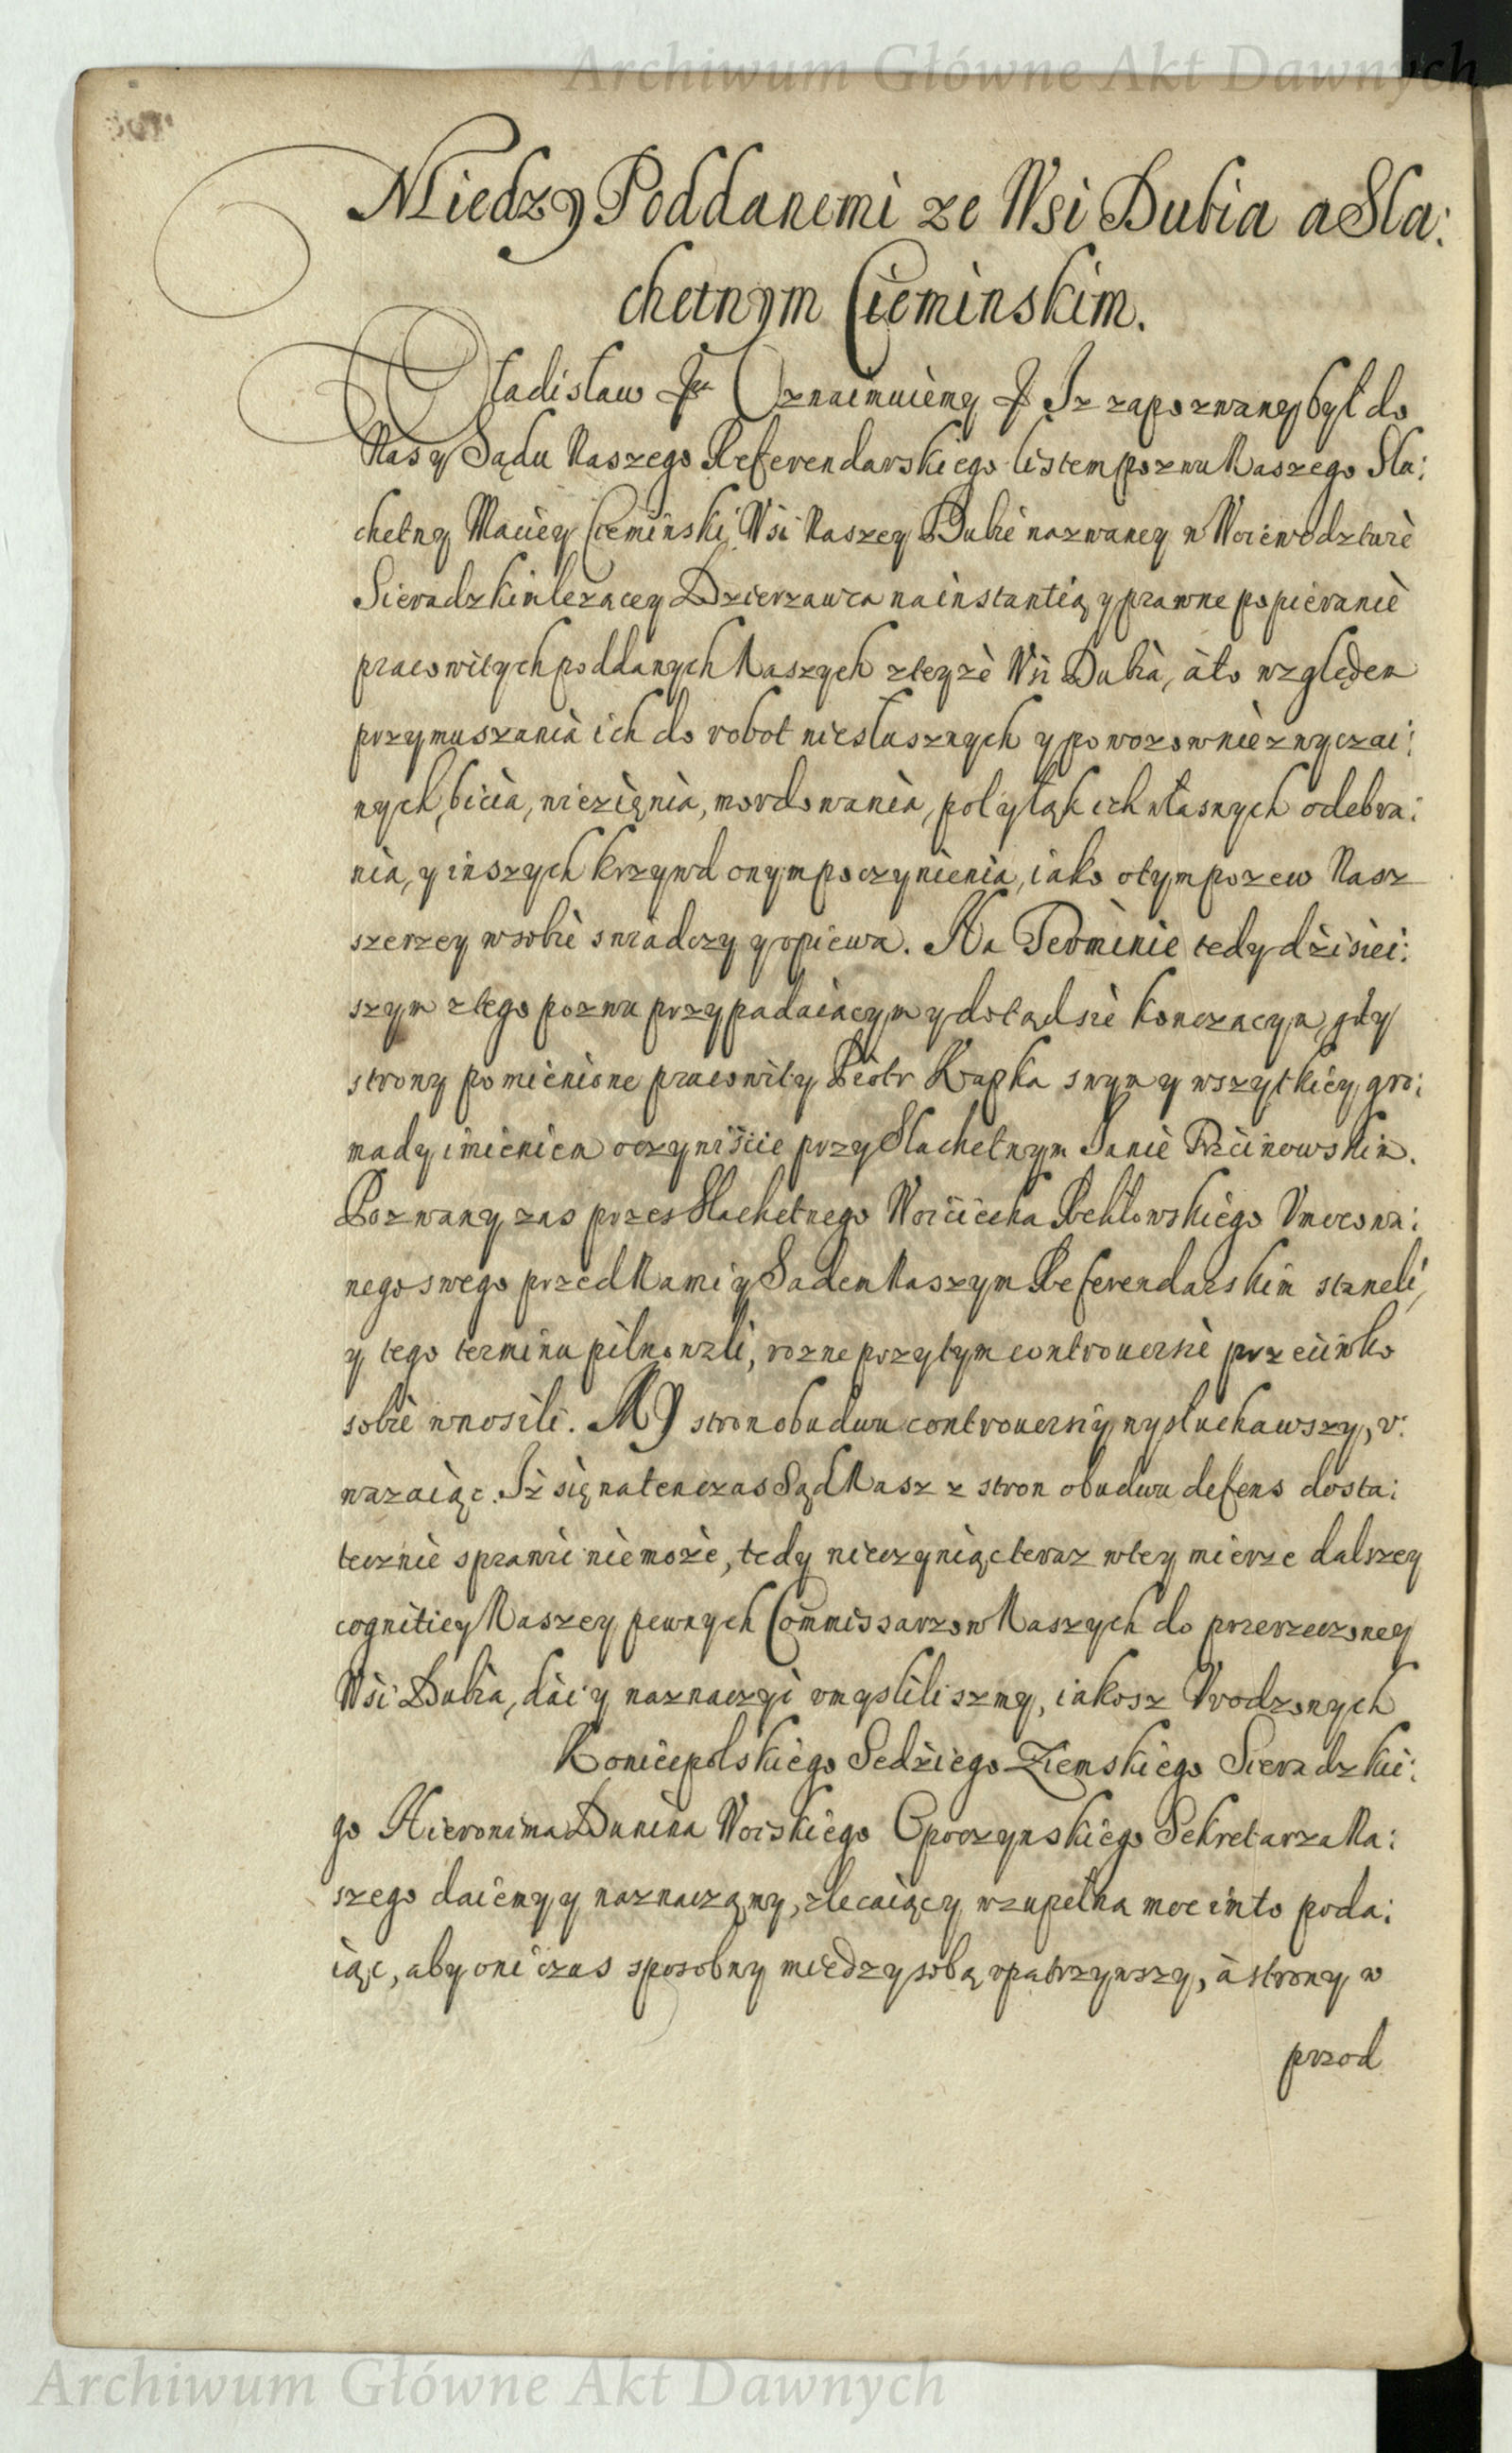 Archiwum Główne Akt Dawnych
Miedzy Poddanemi ze Wsi Dubia a Sla:
chetnym Cieminskim.
Wladislaw Oznaimuiemy Iz zapozwany był do
Nas y Sądu Naszego Referendarskiego listem pozwu Naszego Sla:
chetny Maciey Cieminski Wsi Naszey Dubie nazwaney w Woiewodztwie
Sieradzkim lezącey Dzierzawca na instantią y prawne popieranie
pracowitych poddanych Naszych z teyze Wsi Dubia, a to względem
przymuszania ich do robot niesłusznych y powozow niezwyczai:
nych, bicia, więzienia, mordowania, pol y łąk ich własnych odebra:
nia, y inszych krzywd onym poczynienia, iako o tym pozew Nasz
szerzey w sobie swiadczy y opiewa. Na Terminie tedy dzisiei:
szym z tego pozwu przypadaiącym y dotąd się konczącym, gdy
strony pomienione pracowity Piotr Kapka swym y wszytkiey gro:
mady imieniem oczywiście przy Slachetnym Janie
Pozwany zas przes Slachetnego Woiciecha Umocowa:
nego swego przed Nami y Sądem Naszym Referendarskim staneli,
y tego terminu pilnowali, rozne przy tym controuersie przeciwko
sobie wnosili. MY stron obudwu controuersiy wysłuchawszy, v:
wazaiąc. Iż się na ten czas Sąd Nasz z stron obudwu defens dosta:
tecznie sprawic nie może, tedy nieczyniąc teraz w tey mierze dalszey
cognitiey Naszey pewnych Commissarzow Naszych do przerzeczoney
Wsi Dubia, dać y naznaczyć vmyslilismy, iakosz Vrodzonych
Koniecpolskiego Sedziego Ziemskiego Sieradzkie:
go Hieronima Dunina Woiskiego Opoczynskiego Sekretarza Na:
szego daiemy y naznaczamy, zlecaiący wzupełna moc im to poda:
iąc, aby oni czas sposobny miedzy sobą vpatrzywszy, a strony w
przod
Archiwum Główne Akt Dawnych